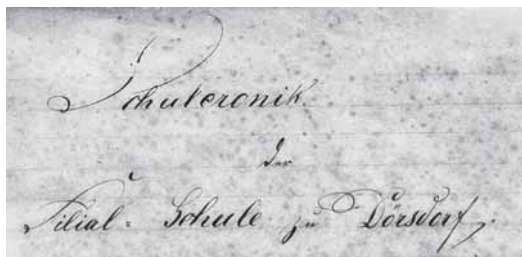 Schulcronik
der
Filial-Schule zu Dörsdorf.